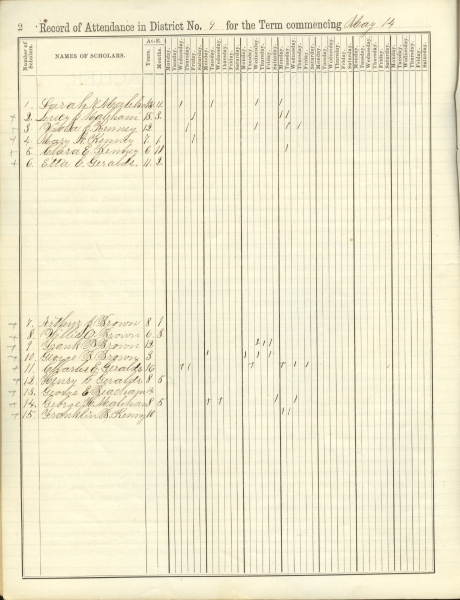 2 Record of Attendance in District No. 9 for the Term commencing May 14
Number of Scholars. NAMES OF SCHOLARS. AGE. Years. Months. Monday. Tuesday. Wednesday. Thursday. Friday. Saturday. Monday. Tuesday. Wednesday. Thursday. Friday. Saturday. Monday. Tuesday. Wednesday. Thursday. Friday. Saturday. Monday. Tuesday. Wednesday. Thursday. Friday. Saturday. Monday. Tuesday. Wednesday. Thursday. Friday. Saturday. Monday. Tuesday. Wednesday. Thursday. Friday. Saturday. Monday. Tuesday. Wednesday. Thursday. Friday. Saturday.
1. Sarah 11
2. Lucy J. 3
3 Kenney 12
4. Mary Kenney 7 1
5. Clara E. Kenney 6 11
6. Etta C. Geralds. 4 2
7. Arthur J. Brown 8 1
8. Willis O. Brown 6 8
9. Frank B. Brown 12
10. George B. Brown 3
11. Charles E. Geralds 16
12. Henry Geralds 8 5
13. George E.
14. George 8 5
15. Franklin B. Kenney 10